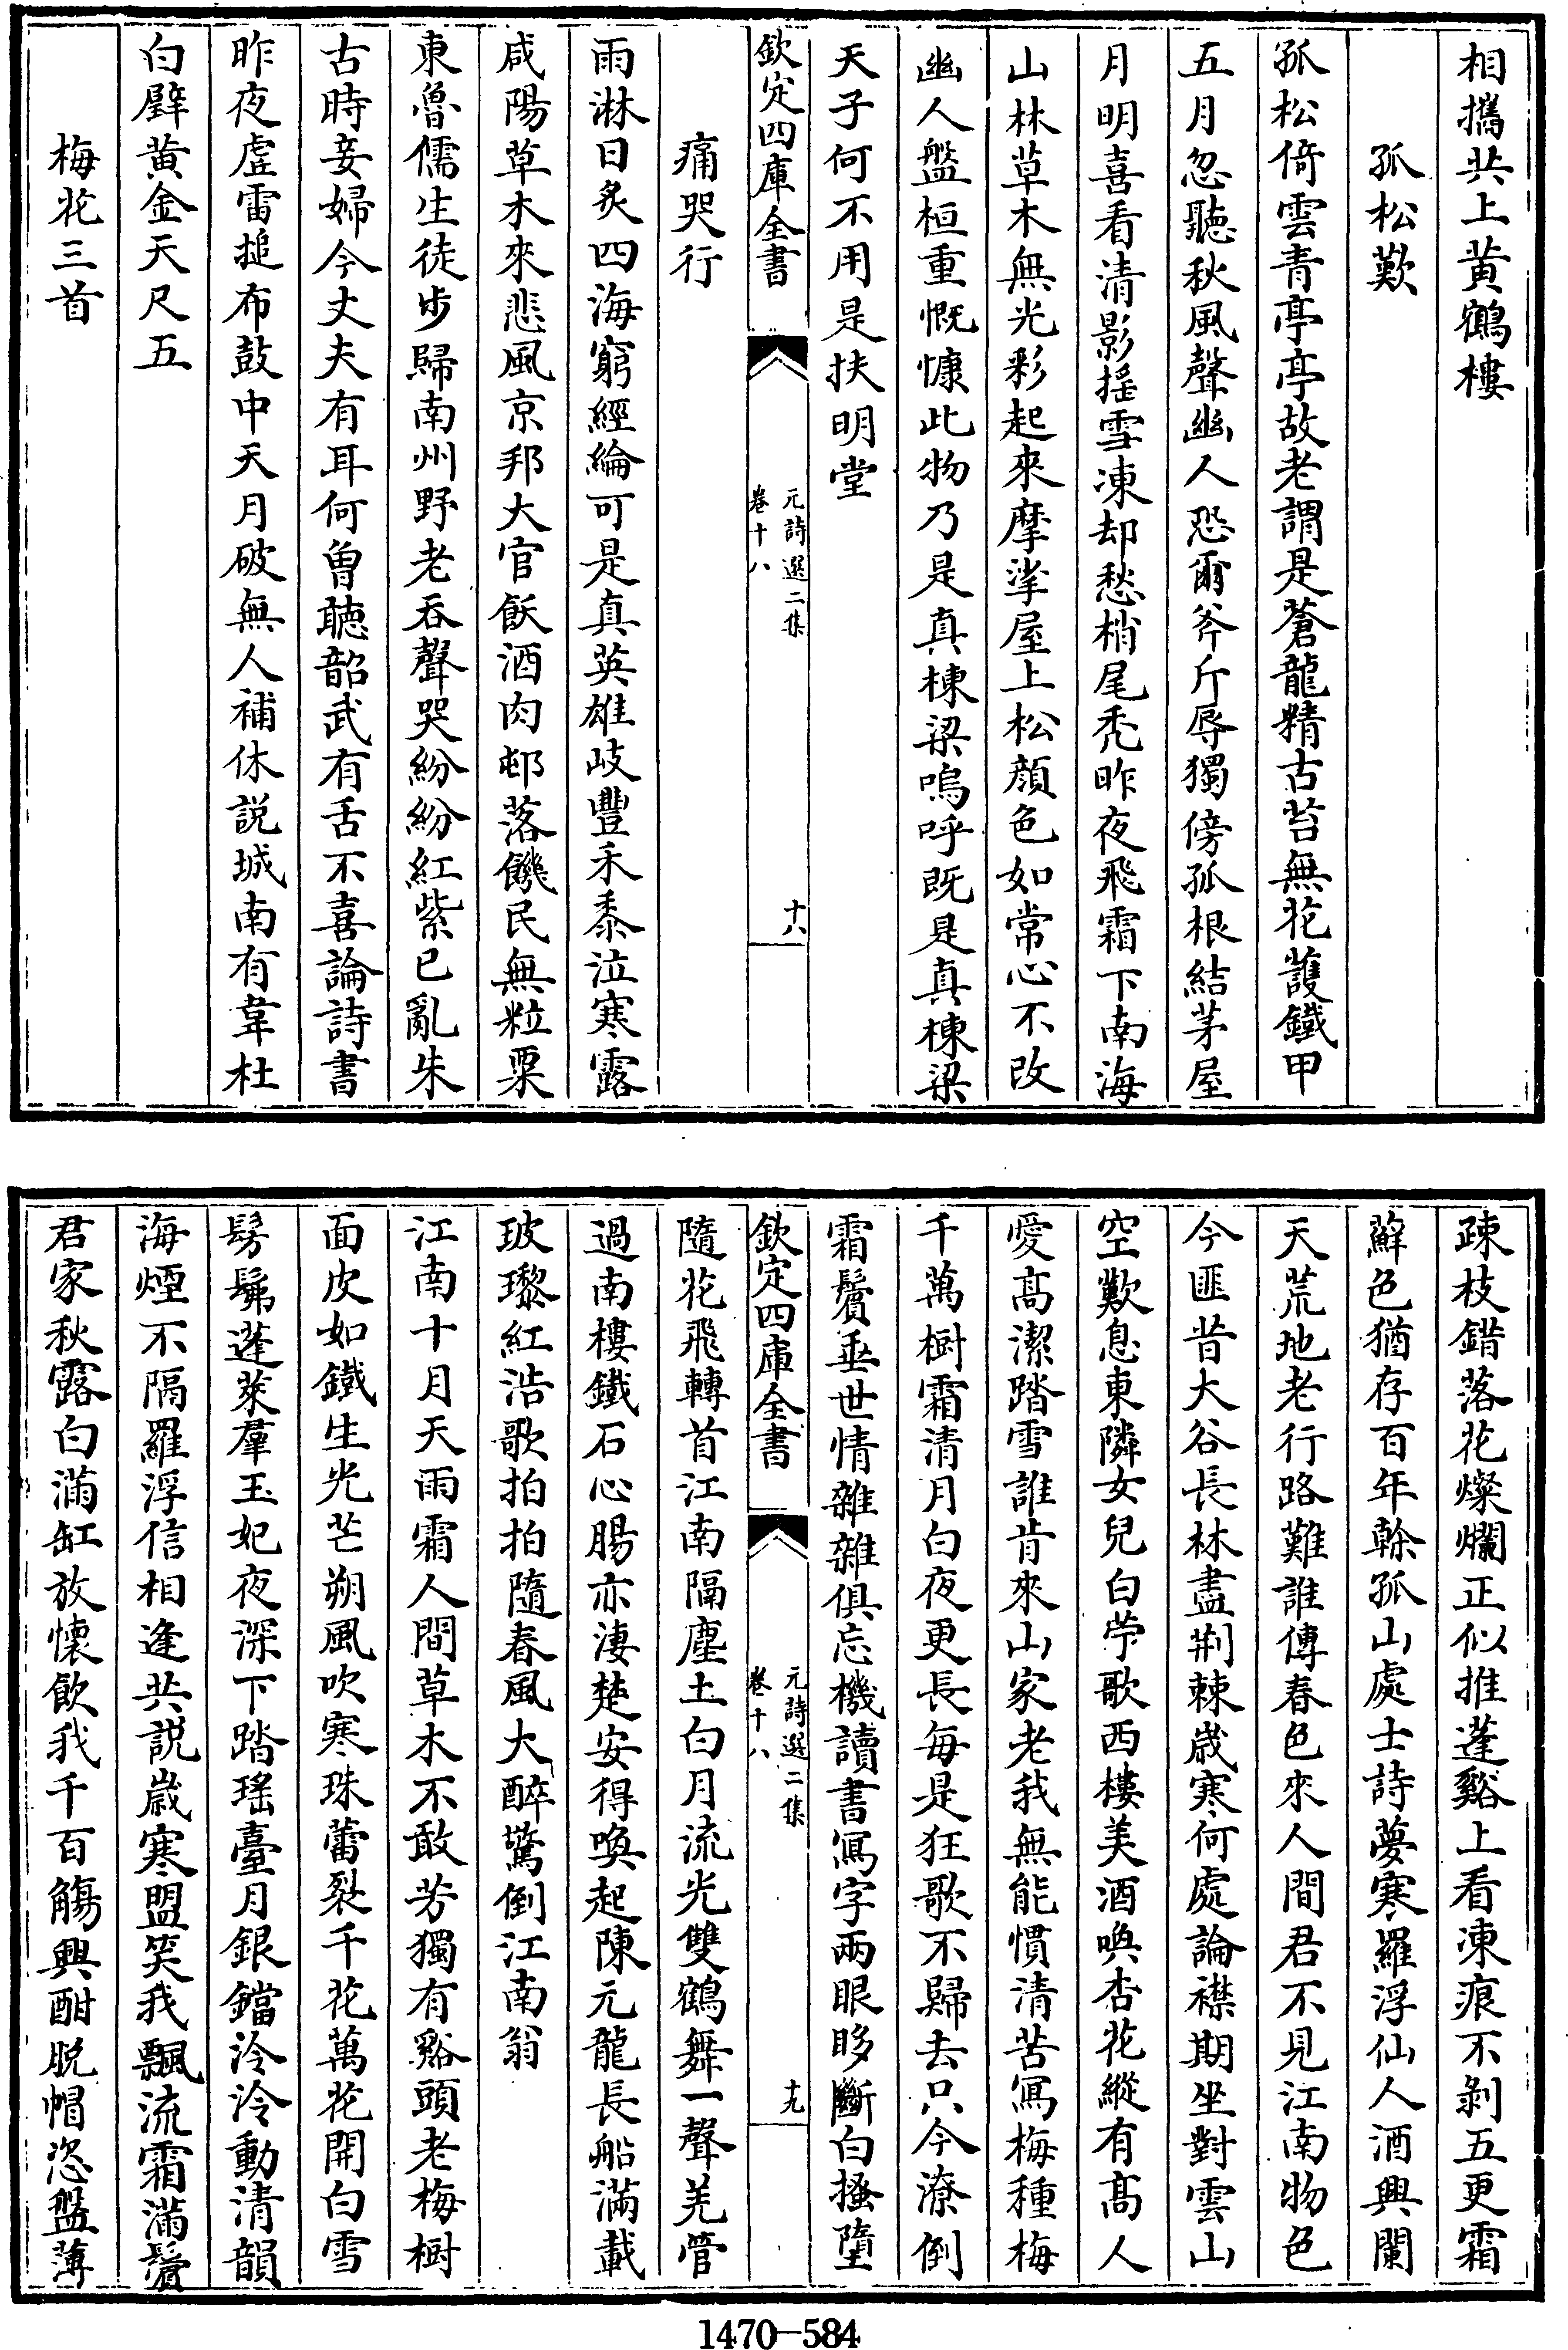 相攜共上黄鶴樓
孤松歎
孤松倚雲青亭亭故老謂是蒼龍精古苔無花護鐵甲
五月忽聽秋風聲幽人恐爾斧斤辱獨傍孤根結茅屋
月明喜看清影摇雪凍却愁梢尾秃昨夜飛霜下南海
山林草木無光彩起來摩挲屋上松顔色如常心不改
幽人盤桓重慨慷此物乃是真棟梁嗚呼既是真棟梁
天子何不用是扶明堂
欽定四庫全書
元詩選二集
卷十八
十八
痛哭行
雨淋日炙四海窮經綸可是真英雄岐豐禾黍泣寒露
咸陽草木來悲風京邦大官飫酒肉邨落饑民無粒粟
東魯儒生徒步歸南州野老吞聲哭紛紛紅紫已亂朱
古時妾婦今丈夫有耳何曾聽韶武有舌不喜論詩書
昨夜虛雷搥布鼓中天月破無人補休説城南有韋杜
白壁黄金天尺五
梅花三首
疎枝錯落花燦爛正似推蓬谿上看凍痕不剝五更霜
蘚色猶存百年榦孤山處士詩夢寒羅浮仙人酒興闌
天荒地老行路難誰傳春色來人間君不見江南物色
今匪昔大谷長林盡荆棘歲寒何處論襟期坐對雲山
空歎息東隣女兒白苧歌西樓美酒喚杏花縱有髙人
愛髙潔踏雪誰肯來山家老我無能慣清苦寫梅種梅
千萬樹霜清月白夜更長每是狂歌不歸去只今潦倒
霜鬢垂世情雜雜俱忘機讀書寫字兩眼眵斷白搔墮
欽定四庫全書
元詩選二集
卷十八
十九
隨花飛轉首江南隔塵土白月流光雙鶴舞一聲羌管
過南樓鐵石心腸亦淒楚安得喚起陳元龍長船滿載
玻瓈紅浩歌拍拍隨春風大醉驚倒江南翁
江南十月天雨霜人間草木不敢芳獨有谿頭老梅樹
面皮如鐵生光芒朔風吹寒珠蕾裂千花萬花開白雪
髣髴蓬萊羣玉妃夜深下踏瑶臺月銀鐺泠泠動清韻
海煙不隔羅浮信相逢共説歲寒盟笑我飄流霜滿鬢
君家秋露白滿缸放懷飲我千百觴興酣脱帽恣盤薄
1470—584